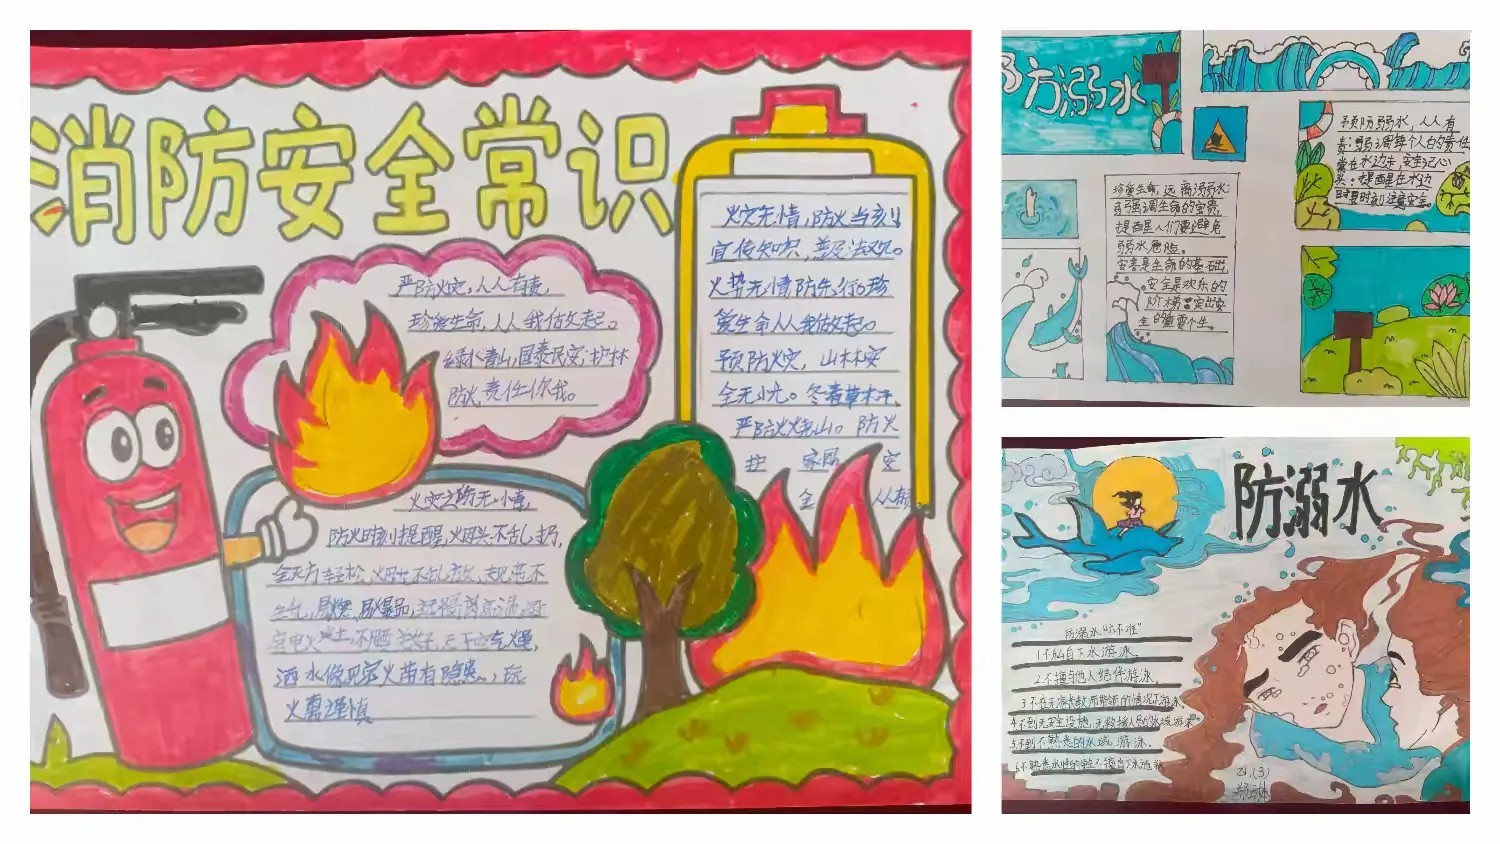 消防安全常识
严防火灾,人人有责,
珍爱生命,人人我做起。
绿水青山,国泰民安,护林
防火,责任你我。
火灾无情,防火当刻
宣传知识,普及法规。
火势无情防先行。珍
爱生命人人我做起。
预防火灾,山林安
全无小光。冬春草木干,
严防火烧山。防火
护 家园 安
全 人人有责。
火灾无情,
防火时刻提醒,烟头不乱扔,
洒水像 火苗有隐患,玩
火需谨慎
防溺水
珍爱生命,远离溺水:
强调生命的宝贵,
提醒人们要避免
溺水危险。
安全是生命的基础,
安全是欢乐的
阶梯:突出安
全的重要个生。
预防溺水,人人有
责:强调每个人的责任
常在水边走,安全记心
头:提醒在水边
时要时刻注意安全。
防溺水
防溺水“六不准”
1.不私自下水游泳。
2.不擅自他人结伴游泳。
3.不在无家长教师带领的情况下游泳
4.不到无安全设施,无救援人员的水域游泳
5.不到不熟悉的水域游泳。
6.不熟悉水性的学生不擅自下水施救
四.(3)